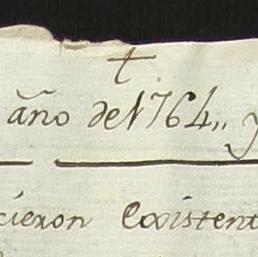 †
año de 1764,, y
cieron Existent